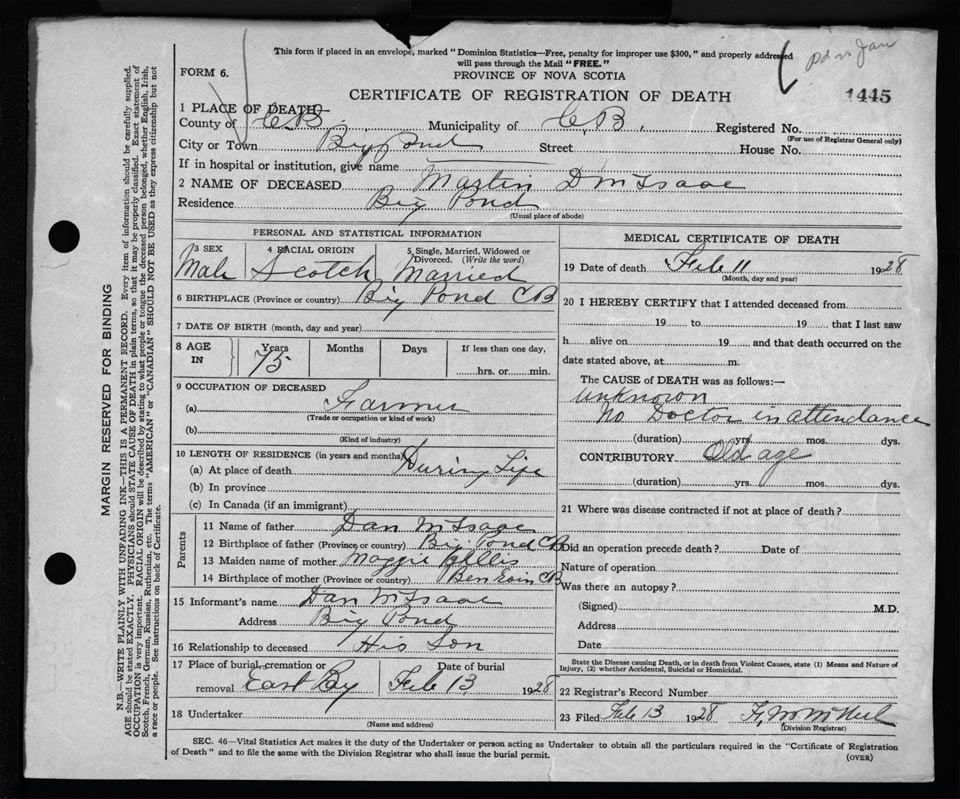 This form if placed in an envelope, marked "Dominion Statistics—Free, penalty for improper use $300," and properly addressed
will pass through the Mail "FREE."
FORM 6.
PROVINCE OF NOVA SCOTIA
CERTIFICATE OF REGISTRATION OF DEATH
1445
1 PLACE OF DEATH—
County of C.B. Municipality of C.B. Registered No.
(For use of Registrar General only)
City or Town Big Pond Street House No.
If in hospital or institution, give name
2 NAME OF DECEASED Martin D McIsaac
Residence Big Pond
(Usual place of abode)
PERSONAL AND STATISTICAL INFORMATION
3 SEX 4 RACIAL ORIGIN 5 Single, Married, Widowed or Divorced. (Write the word)
Male Scotch Married
6 BIRTHPLACE (Province or country) Big Pond CB
7 DATE OF BIRTH (month, day and year)
8 AGE IN Years Months Days If less than one day,
75 hrs. or min.
9 OCCUPATION OF DECEASED
(a) Farmer
(Trade or occupation or kind of work)
(b)
(Kind of industry)
10 LENGTH OF RESIDENCE (in years and months)
(a) At place of death During Life
(b) In province
(c) In Canada (if an immigrant)
Parents
11 Name of father Dan McIsaac
12 Birthplace of father (Province or country) Big Pond CB
13 Maiden name of mother Maggie Gillis
14 Birthplace of mother (Province or country) CB
15 Informant's name Dan McIsaac
Address Big Pond
16 Relationship to deceased His Son
17 Place of burial, cremation or removal East Bay Date of burial Feb 13 1928
18 Undertaker
(Name and address)
MEDICAL CERTIFICATE OF DEATH
19 Date of death Feb 11 1928
(Month, day and year)
20 I HEREBY CERTIFY that I attended deceased from
19 to 19 that I last saw
h alive on 19 and that death occurred on the
date stated above, at m.
The CAUSE OF DEATH was as follows:—
Unknown
No Doctor in attendance
(duration) yrs. mos. dys.
CONTRIBUTORY Old age
(duration) yrs. mos. dys.
21 Where was disease contracted if not at place of death?
Did an operation precede death? Date of
Nature of operation
Was there an autopsy?
(Signed) M.D.
Address
Date
State the Disease causing Death, or in death from Violent Causes, state (1) Means and Nature of
Injury, (2) whether Accidental, Suicidal or Homicidal.
22 Registrar's Record Number
23 Filed Feb 13 1928
(Division Registrar)
SEC. 46—Vital Statistics Act makes it the duty of the Undertaker or person acting as Undertaker to obtain all the particulars required in the "Certificate of Registration
of Death" and to file the same with the Division Registrar who shall issue the burial permit.
(OVER)
MARGIN RESERVED FOR BINDING
N.B.—WRITE PLAINLY WITH UNFADING INK—THIS IS A PERMANENT RECORD. Every item of information should be carefully supplied.
AGE should be stated EXACTLY. PHYSICIANS should STATE CAUSE OF DEATH in plain terms, so that it may be properly classified. Exact statement of
OCCUPATION is very important. RACIAL ORIGIN will be described by stating to what people or tongue the deceased person belonged, whether English, Irish,
Scotch, French, German, Russian, Ruthenian, etc. The terms "AMERICAN" or "CANADIAN" SHOULD NOT BE USED as they express citizenship but not
a race or people. See instructions on back of Certificate.